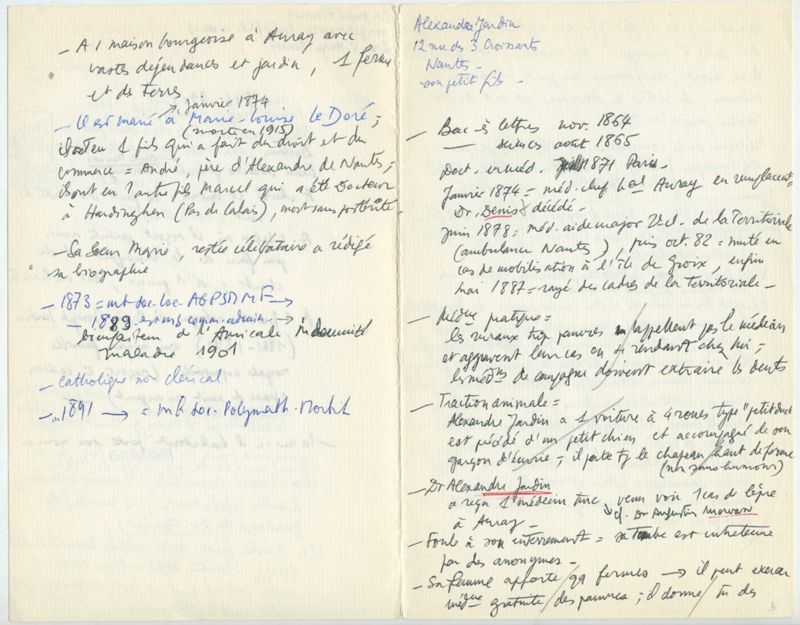 - A 1 maison bourgeoise à Auray avec
vastes dépendances et jardin, 1 ferme
et de terres
janvier 1874
- Il est marié à Marie-Louise Le Doré ;
(morte en 1915)
1 fils qui a fait du droit et du
commerce = André, père d'Alexandre de Nantes ;
ont en 1 autre fils Marcel qui a été Docteur
à Hardinghen (Pas de Calais), mort sans postérité
- Sa soeur Marie, restée célibataire a rédigé
sa biographie
- 1873 = mb soc. loc. AGPSDMF →
- 1889 est mb comm. admin →
bienfaiteur de l'Amicale Indemnité
maladie 1901
- Catholique non clérical
- 1891 → = mb Soc. Polymath. Morbih
Alexandre Jardin
12 rue des 3 Croissants
Nantes -
son petit fils -
- Bac. ès lettres nov. 1864
sciences août 1865
Doct. en méd. 1871 Paris -
Janvier 1874 = méd. chef hal Auray en remplacement
Dr. Denis décédé -
Juin 1878 = méd. aide major de la Territoriale
(ambulance Nantes), puis oct. 82 = muté en
cas de mobilisation à l'île de Groix, enfin
mai 1887 = rayé des cadres de la Territoriale -
- pratique =
les ruraux très pauvres n'appellent pas le médecin
et aggravent leur cas en se rendant chez lui ;
les médins de campagne doivent extraire les dents
- Traction animale =
Alexandre Jardin a 1 voiture à 4 roues type "petit duc"
est précédé d'un petit chien et accompagné de son
garçon d'écurie ; il porte tj le chapeau haut de forme
(non sans humour)
- Dr Alexandre Jardin
a reçu 1 médecin turc venu voir 1 cas de lèpre
à Auray - cf. Dr Augustin Morvan
- Foule à son enterrement = sa tombe est entretenue
par des anonymes -
- Sa femme apporte qq fermes → il peut exercer
gratuite des pauvres ; il donne tj des